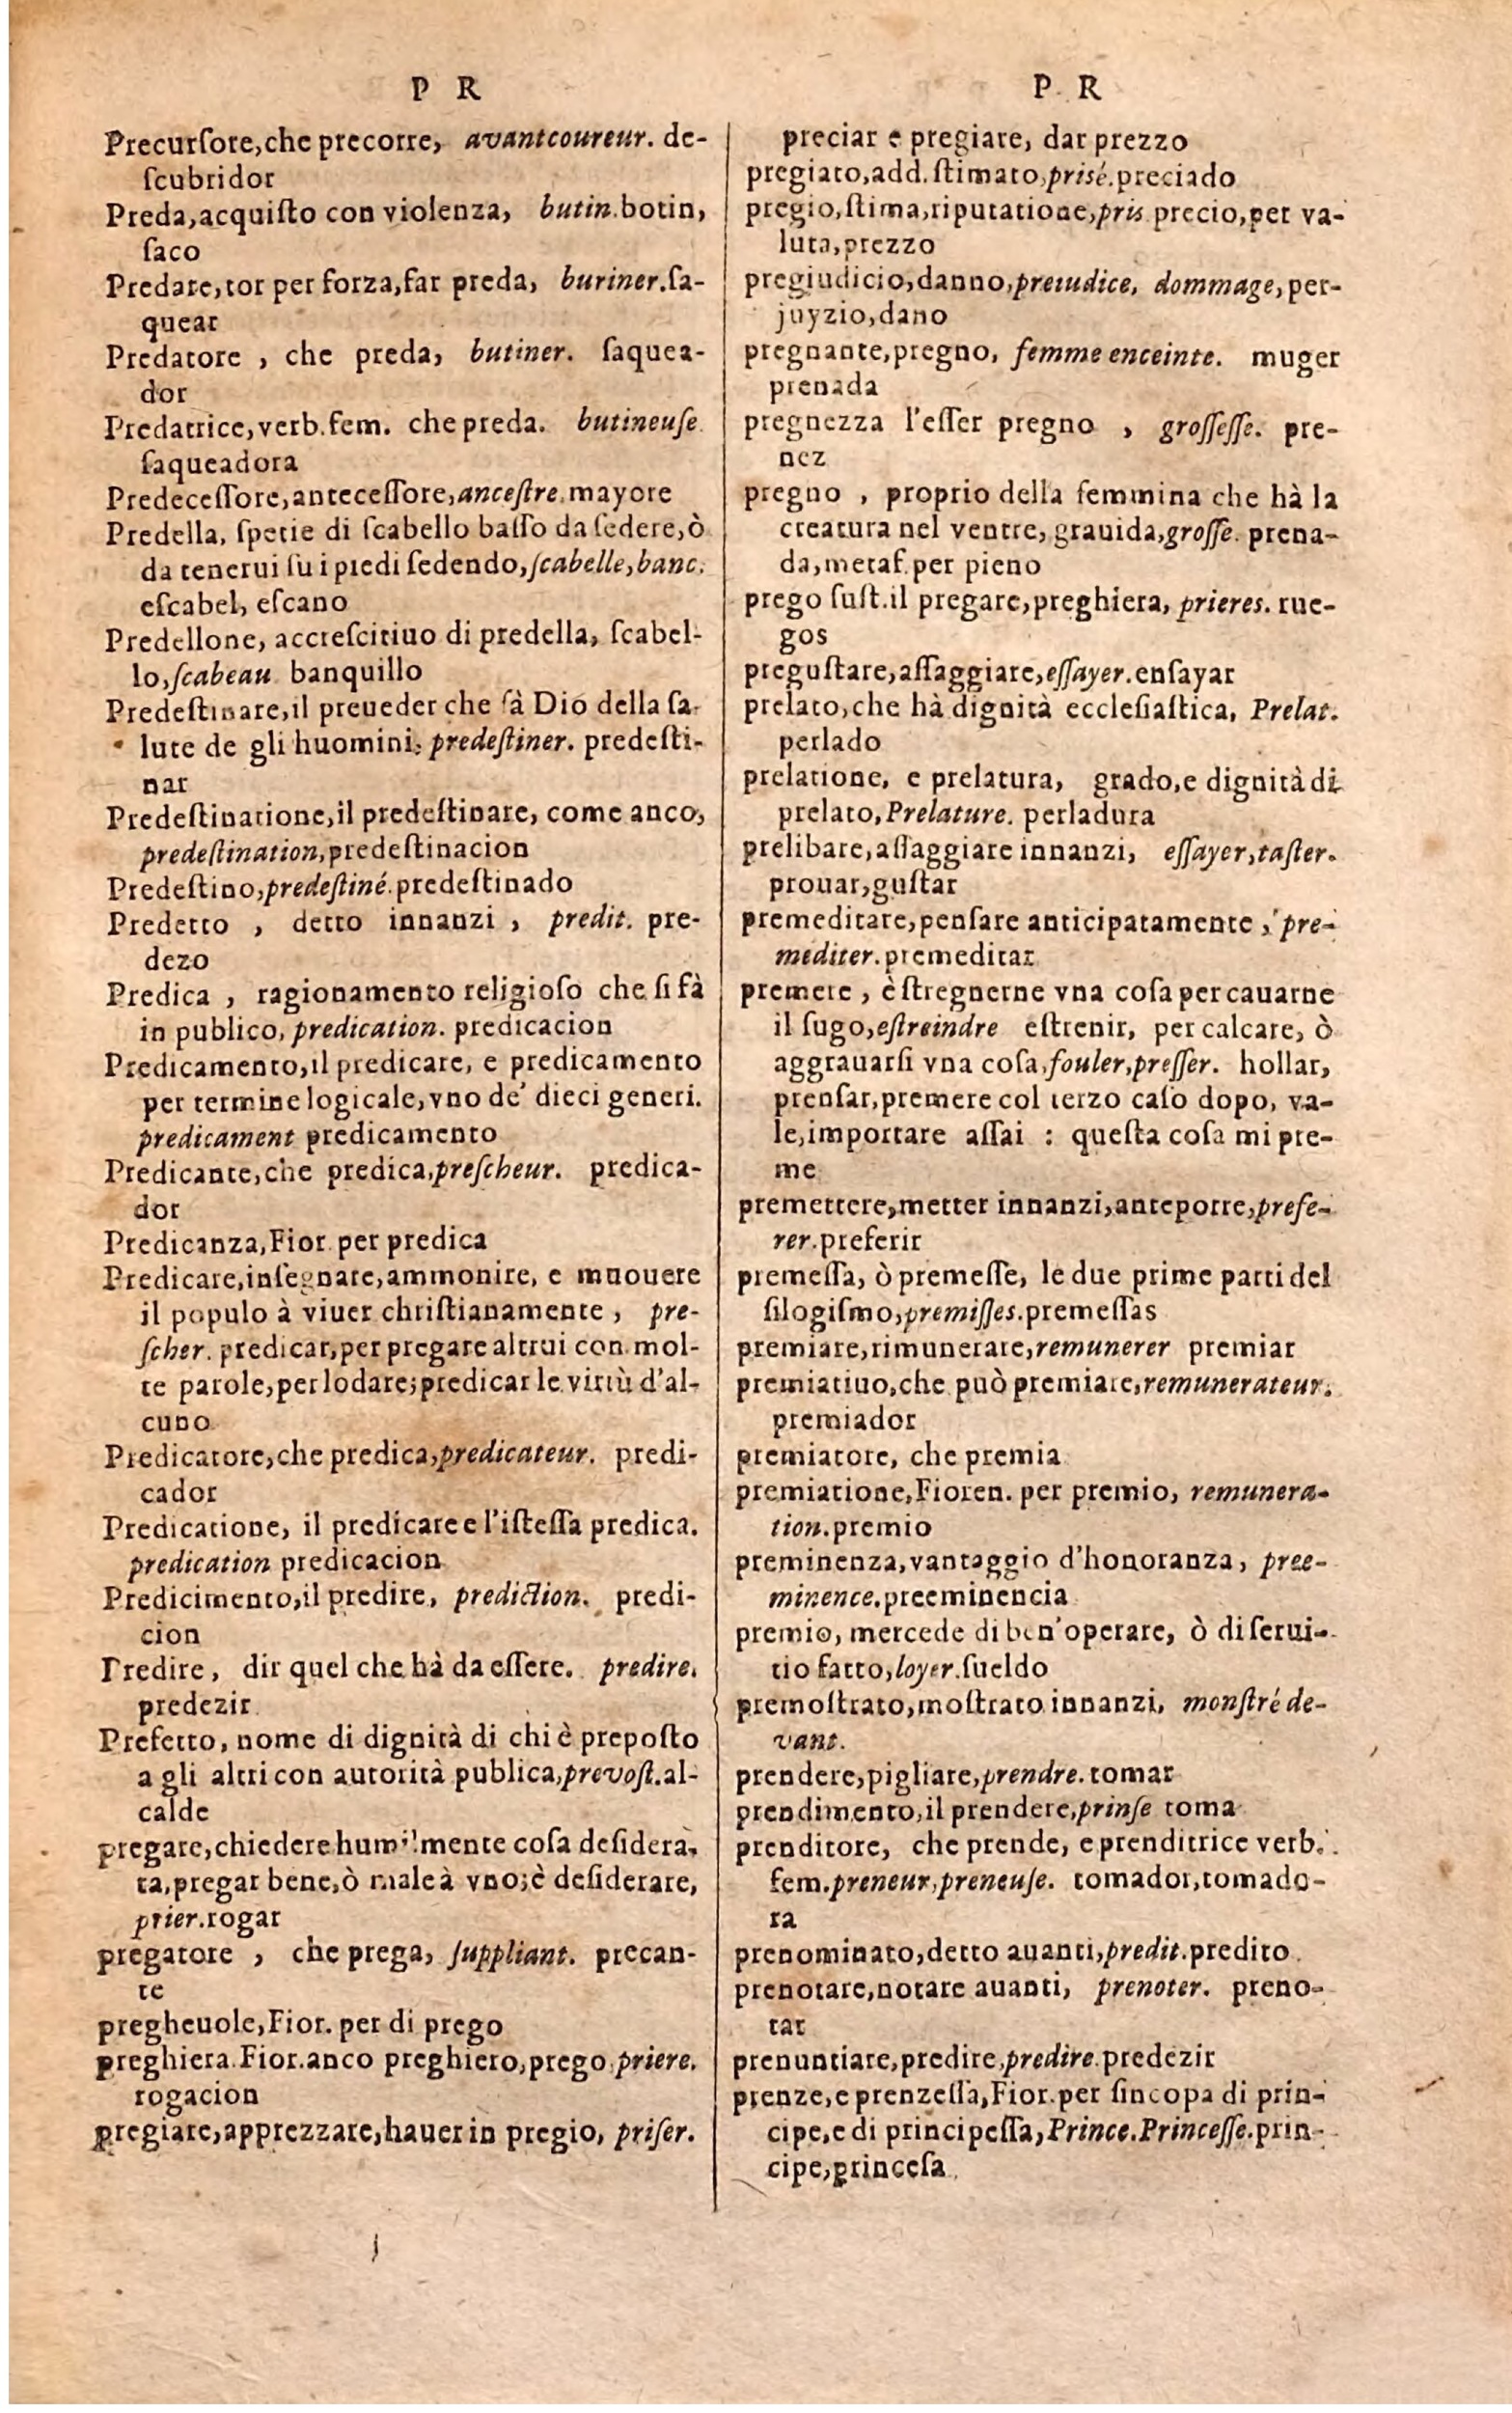 P R
Precurſore,che precorre, avantcoureur. de-
ſcubridor
Preda,acquiſto con violenza, butin.botin,
ſaco
Predare,tor per forza,far preda, buriner.ſa-
quear
Predatore , che preda, butiner. ſaquea-
dor
Predatrice,verb.fem. che preda. butineuſe
ſaqueadora
Predeceſſore,anteceſſore,anceſtre.mayore
Predella, ſpetie di ſcabello baſſo da ſedere,ò
da tenerui ſu i piedi ſedendo,ſcabelle,banc.
eſcabel, eſcano
Predellone, accreſcitiuo di predella, ſcabel-
lo,ſcabeau banquillo
Predeſtinare,il preueder che fà Dio della ſa-
lute de gli huomini, predeſtiner. predeſti-
nar
Predeſtinatione,il predeſtinare, come anco,
predeſtination,predeſtinacion
Predeſtino,predeſtiné.predeſtinado
Predetto , detto innanzi , predit. pre-
dezo
Predica , ragionamento religioſo che ſi fà
in publico, predication. predicacion
Predicamento,il predicare, e predicamento
per termine logicale,vno de' dieci generi.
predicament predicamento
Predicante,che predica,preſcheur. predica-
dor
Predicanza,Fior.per predica
Predicare,inſegnare,ammonire, e muouere
il populo à viuer chriſtianamente , pre-
ſcher. predicar,per pregare altrui con mol-
te parole,per lodare;predicar le virtù d'al-
cuno
Predicatore,che predica,predicateur. predi-
cador
Predicatione, il predicare e l'iſteſſa predica.
predication predicacion
Predicimento,il predire, prediction. predi-
cion
Predire, dir quel che hà da eſſere. predire.
predezir
Prefetto, nome di dignità di chi è prepoſto
a gli altri con autorità publica,prevoſt.al-
calde
pregare,chiedere humilmente coſa deſidera-
ta,pregar bene,ò male à vno;è deſiderare,
prier.rogar
pregatore , che prega, ſuppliant. precan-
te
pregheuole,Fior. per di prego
preghiera.Fior.anco preghiero,prego.priere.
rogacion
pregiare,apprezzare,hauer in pregio, priſer.
P R
preciar e pregiare, dar prezzo
pregiato,add.ſtimato,prisé.preciado
pregio,ſtima,riputatione,pris precio,per va-
luta,prezzo
pregiudicio,danno,preiudice, dommage,per-
juyzio,dano
pregnante,pregno, femme enceinte. muger
prenada
pregnezza l'eſſer pregno , groſſeſſe. pre-
nez
pregno , proprio della femmina che hà la
creatura nel ventre, grauida,groſſe. prena-
da,metaf.per pieno
prego ſuſt.il pregare,preghiera, prieres. rue-
gos
preguſtare,aſſaggiare,eſſayer.enſayar
prelato,che hà dignità eccleſiaſtica, Prelat.
perlado
prelatione, e prelatura, grado,e dignità di
prelato,Prelature. perladura
prelibare,aſſaggiare innanzi, eſſayer,taſter.
prouar,guſtar
premeditare,penſare anticipatamente , pre-
mediter.premeditar
premere , è ſtregnerne vna coſa per cauarne
il ſugo,eſtreindre eſtrenir, per calcare, ò
aggrauarſi vna coſa,fouler,preſſer. hollar,
prenſar,premere col terzo caſo dopo, va-
le,importare aſſai : queſta coſa mi pre-
me
premettere,metter innanzi,anteporre,prefe-
rer.preferir
premeſſa, ò premeſſe, le due prime parti del
ſilogiſmo,premiſſes.premeſſas
premiare,rimunerare,remunerer premiar
premiatiuo,che può premiare,remunerateur.
premiador
premiatore, che premia
premiatione,Fioren. per premio, remunera-
tion.premio
preminenza,vantaggio d'honoranza, pree-
minence.preeminencia
premio, mercede di ben'operare, ò di ſerui-
tio fatto,loyer.ſueldo
premoſtrato,moſtrato innanzi, monſtré de-
vant.
prendere,pigliare,prendre.tomar
prendimento,il prendere,prinſe toma
prenditore, che prende, e prenditrice verb.
fem.preneur,preneuſe. tomador,tomado-
ra
prenominato,detto auanti,predit.predito
prenotare,notare auanti, prenoter. preno-
tar
prenuntiare,predire,predire.predezir
prenze,e prenzeſſa,Fior.per ſincopa di prin-
cipe,e di principeſſa,Prince.Princeſſe.prin-
cipe,princeſa